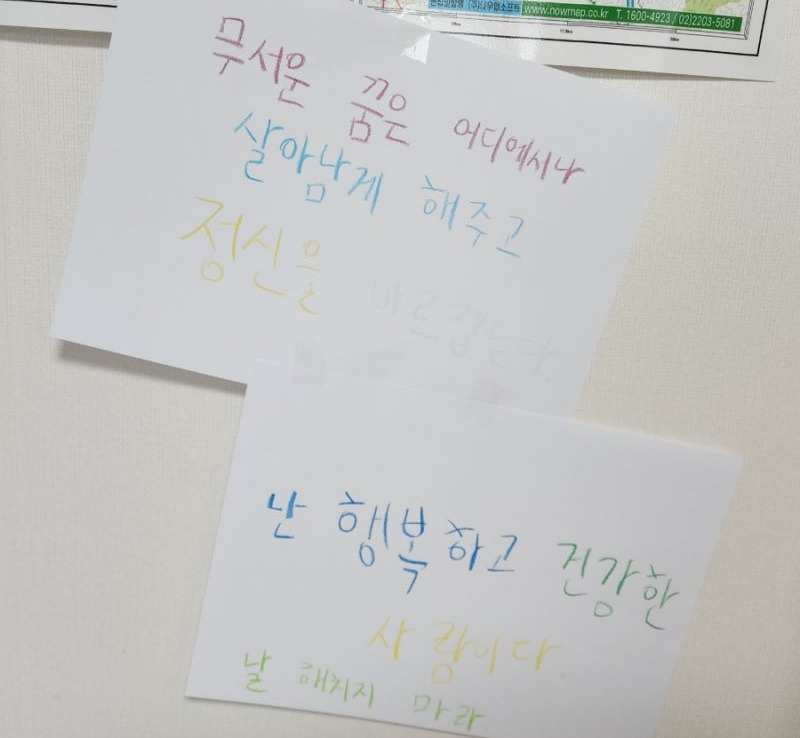 www.nowmap.co.kr T. 1600-4923 / 02)2203-5081
무서운 꿈은 어디에서나
살아남게 해주고
정신을 바로잡는다.
난 행복하고 건강한
사람이다.
날 해치지 마라